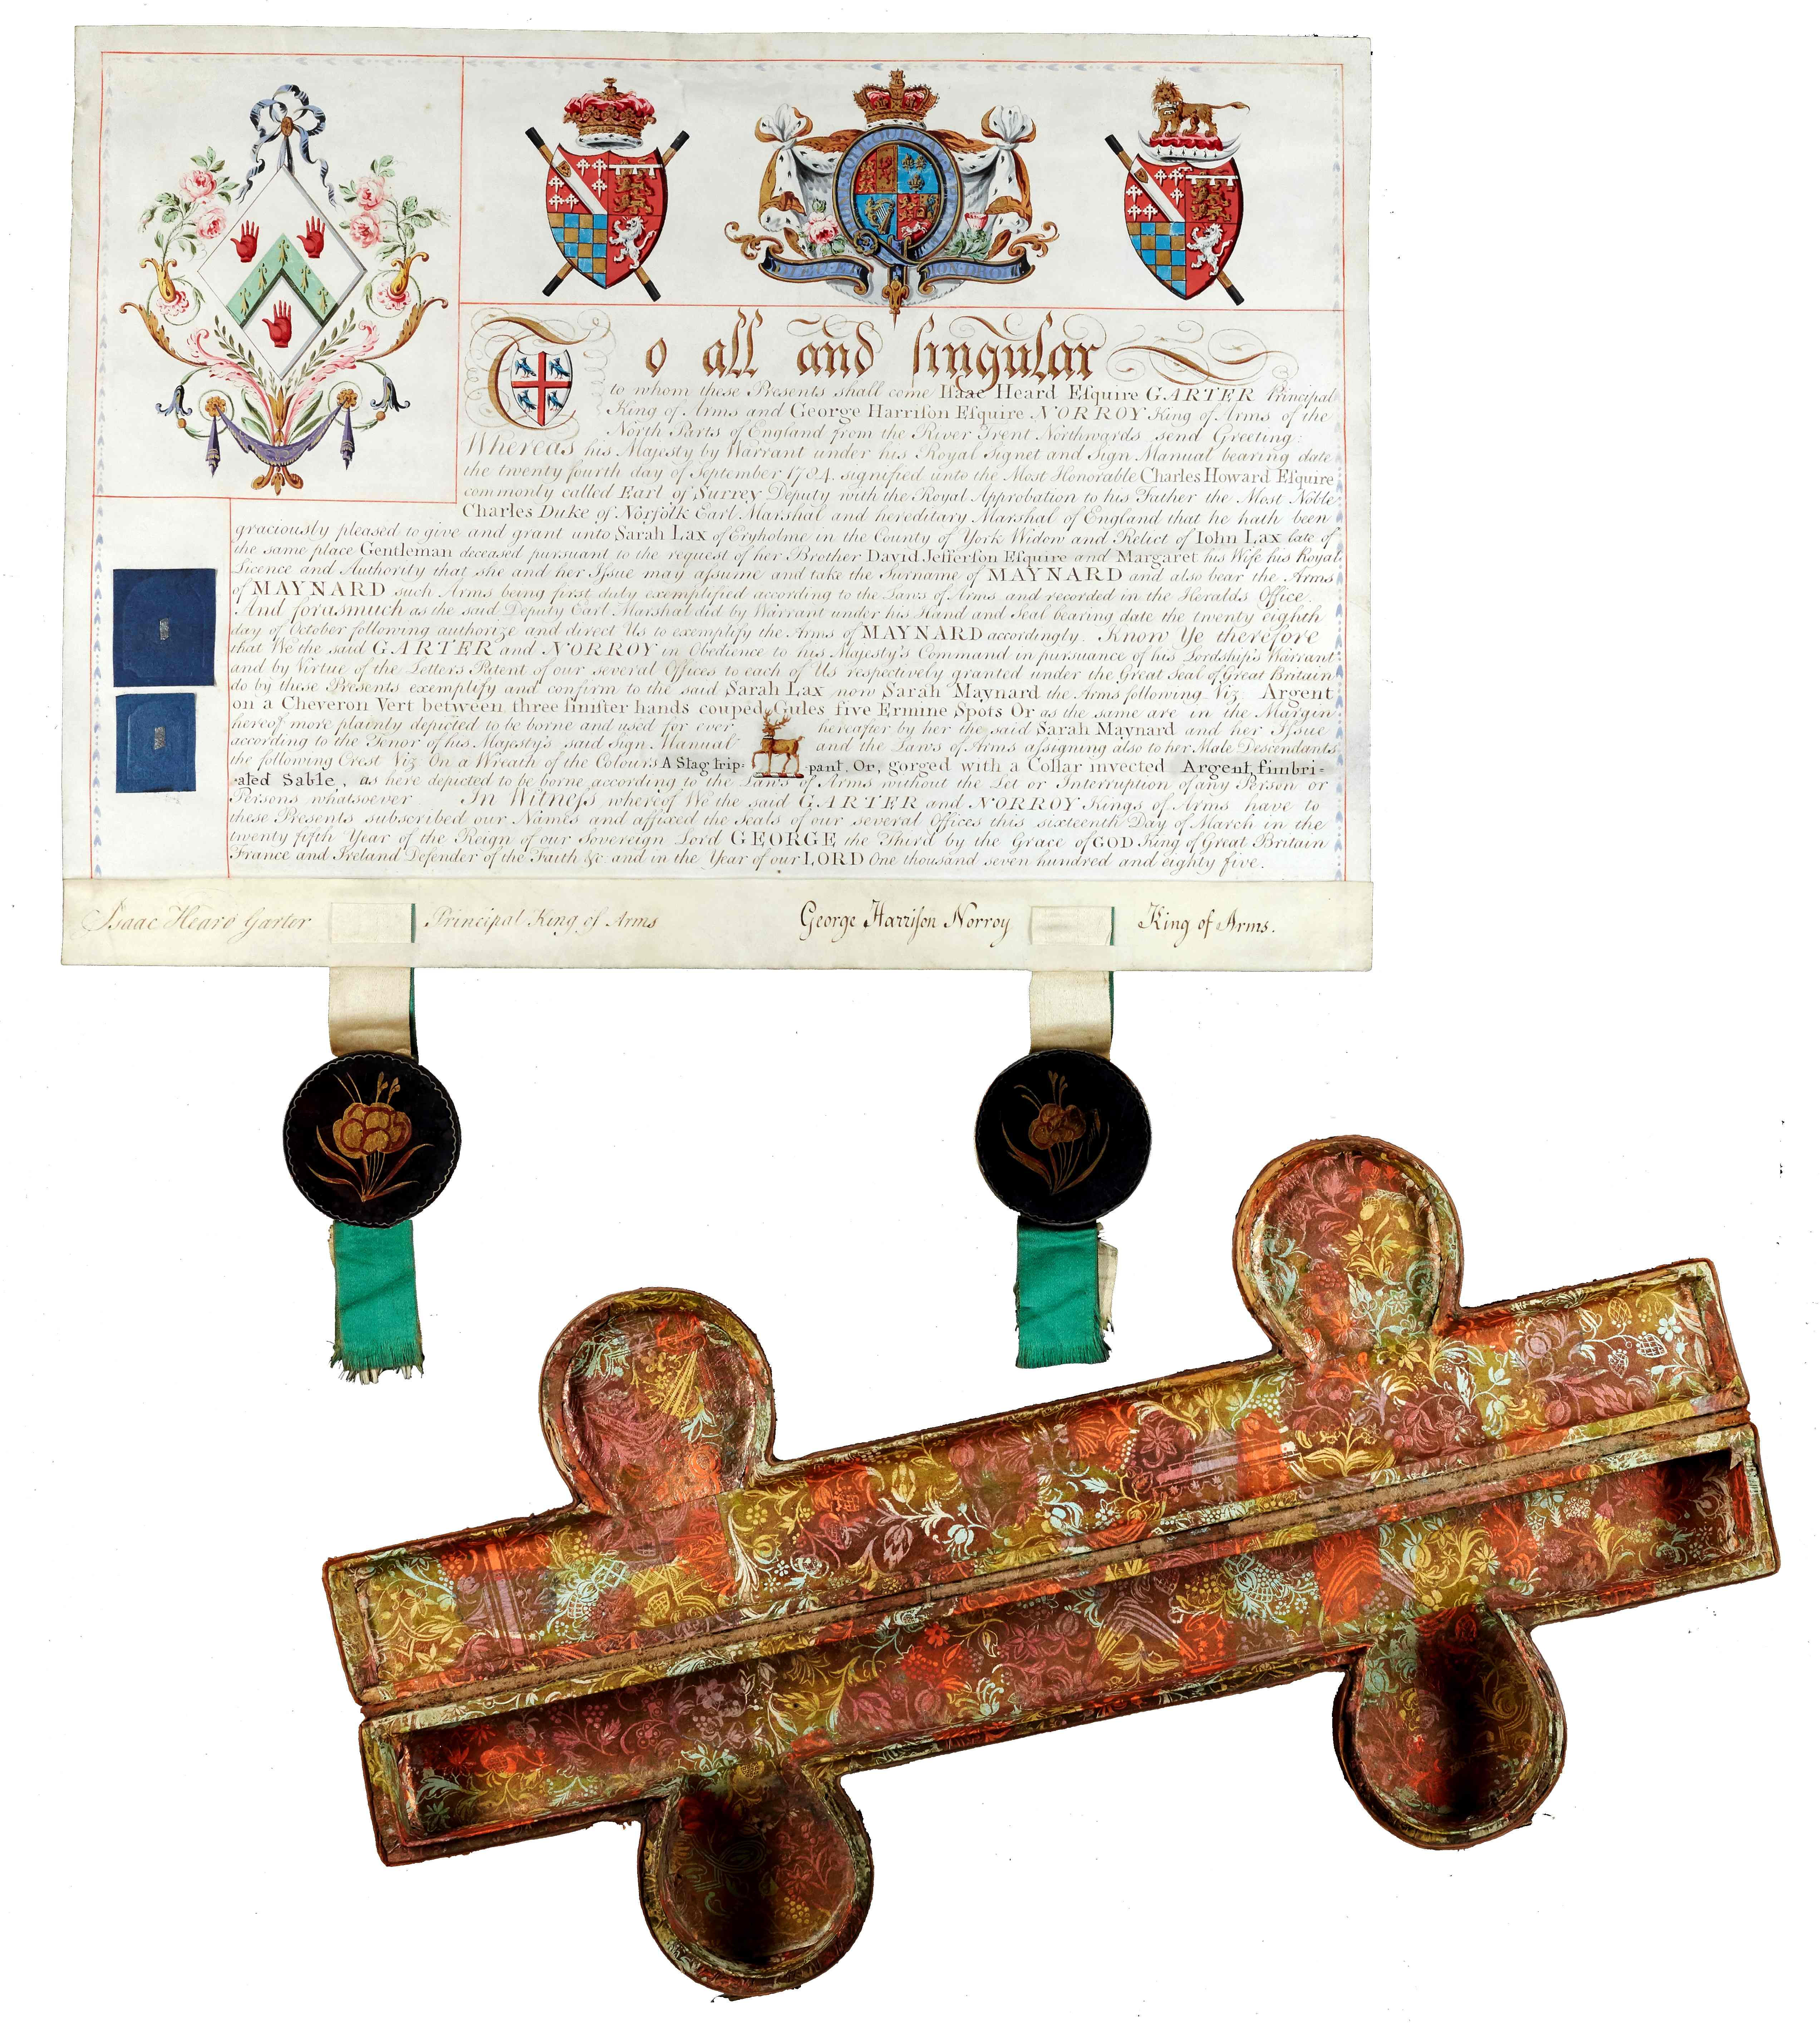 To all and singular
to whom these Presents shall come Isaac Heard Esquire GARTER Principal
King of Arms and George Harrison Esquire NORROY King of Arms of the
North Parts of England from the River Trent Northwards send Greeting:
Whereas his Majesty by Warrant under his Royal Signet and Sign Manual bearing date
the twenty fourth day of September 1784. signified unto the Most Honorable Charles Howard Esquire
commonly called Earl of Surrey Deputy with the Royal Approbation to his Father the Most Noble
Charles Duke of Norfolk Earl Marshal and hereditary Marshal of England that he hath been
graciously pleased to give and grant unto Sarah Lax of Eryholme in the County of York Widow and Relict of Iohn Lax late of
the same place Gentleman deceased pursuant to the request of her Brother David Jefferson Esquire and Margaret his Wife his Royal
Licence and Authority that she and her Issue may assume and take the Surname of MAYNARD and also bear the Arms
of MAYNARD such Arms being first duly exemplified according to the Laws of Arms and recorded in the Heralds Office.
And forasmuch as the said Deputy Earl Marshal did by Warrant under his Hand and Seal bearing date the twenty eighth
day of October following authorize and direct Us to exemplify the Arms of MAYNARD accordingly. Know Ye therefore
that We the said GARTER and NORROY in Obedience to his Majesty's Command in pursuance of his Lordship's Warrant
and by Virtue of the Letters Patent of our several Offices to each of Us respectively granted under the Great Seal of Great Britain
do by these Presents exemplify and confirm to the said Sarah Lax now Sarah Maynard the Arms following Viz. Argent
on a Cheveron Vert between three sinister hands couped Gules five Ermine Spots Or as the same are in the Margin
hereof more plainly depicted to be borne and used for ever hereafter by her the said Sarah Maynard and her Issue
according to the Tenor of his Majesty's said Sign Manual and the Laws of Arms assigning also to her Male Descendants
the following Crest Viz. On a Wreath of the Colours A Stag trip= pant. Or, gorged with a Collar invected Argent, fimbri=
=ated Sable, as here depicted to be borne according to the Laws of Arms without the Let or Interruption of any Person or
Persons whatsoever In Witness whereof We the said GARTER and NORROY Kings of Arms have to
these Presents subscribed our Names and affixed the Seals of our several Offices this sixteenth Day of March in the
twenty fifth Year of the Reign of our Sovereign Lord GEORGE the Third by the Grace of GOD King of Great Britain
France and Ireland Defender of the Faith &c. and in the Year of our LORD One thousand seven hundred and eighty five.
Isaac Heard Garter Principal King of Arms George Harrison Norroy King of Arms.